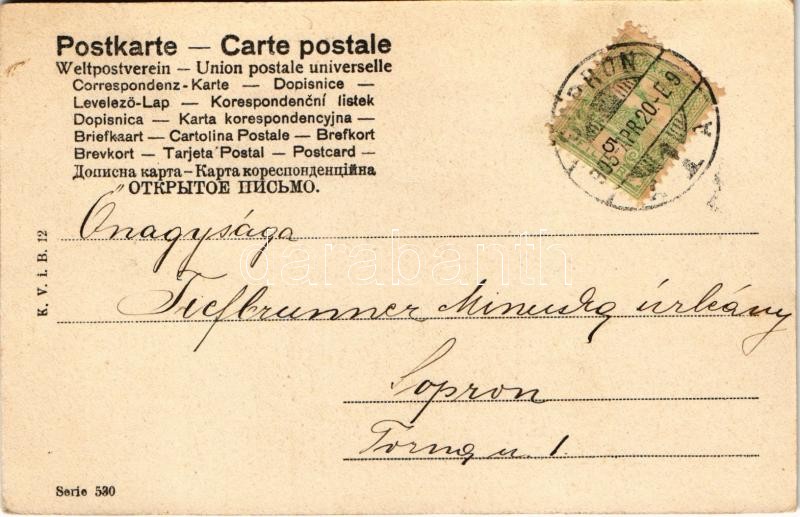 Postkarte — Carte postale
Weltpostverein — Union postale universelle
Correspondenz-Karte — Dopisnice —
Levelező-Lap — Korespondenční listek
Dopisnica — Karta korespondencyjna —
Briefkaart — Cartolina Postale — Brefkort
Brevkort — Tarjeta Postal — Postcard —
Дописна карта — Карта кореспонденційна
ОТКРЫТОЕ ПИСЬМО.
SOPRON
905 APR. 20. E. 9
K. V. i. B. 12
Őnagysága
darabanth
Tiefbrunner Minuska úrleány
Sopron
Torna u. 1.
Serie 530